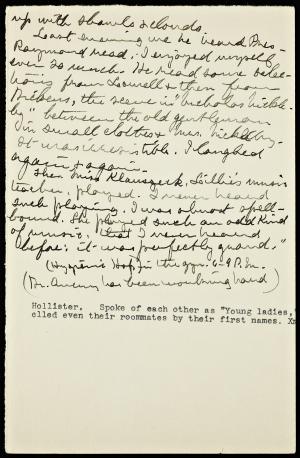 up with shawls & clouds.
Last evening we he heard Pres.
Raymond read. I enjoyed myself
ever so much. He read some selec-
tions from Lowell & then from
Dickens, the scene in "Nicholas Nickle-
by" between the old gentleman
in small clothes & Mrs. Nickleby.
It was irresistible. I laughed
again & again.
Then Miss, Lillie's music
teacher, played. I never heard
such playing. I was almost spell-
bound. She played such an odd kind
of music; that I never heard
before; it was perfectly grand."
(Hop in the gym. 6-9 P.M.
(has been working hard)
Hollister. Spoke of each other as "Young ladies,
clled even their roommates by their first names.